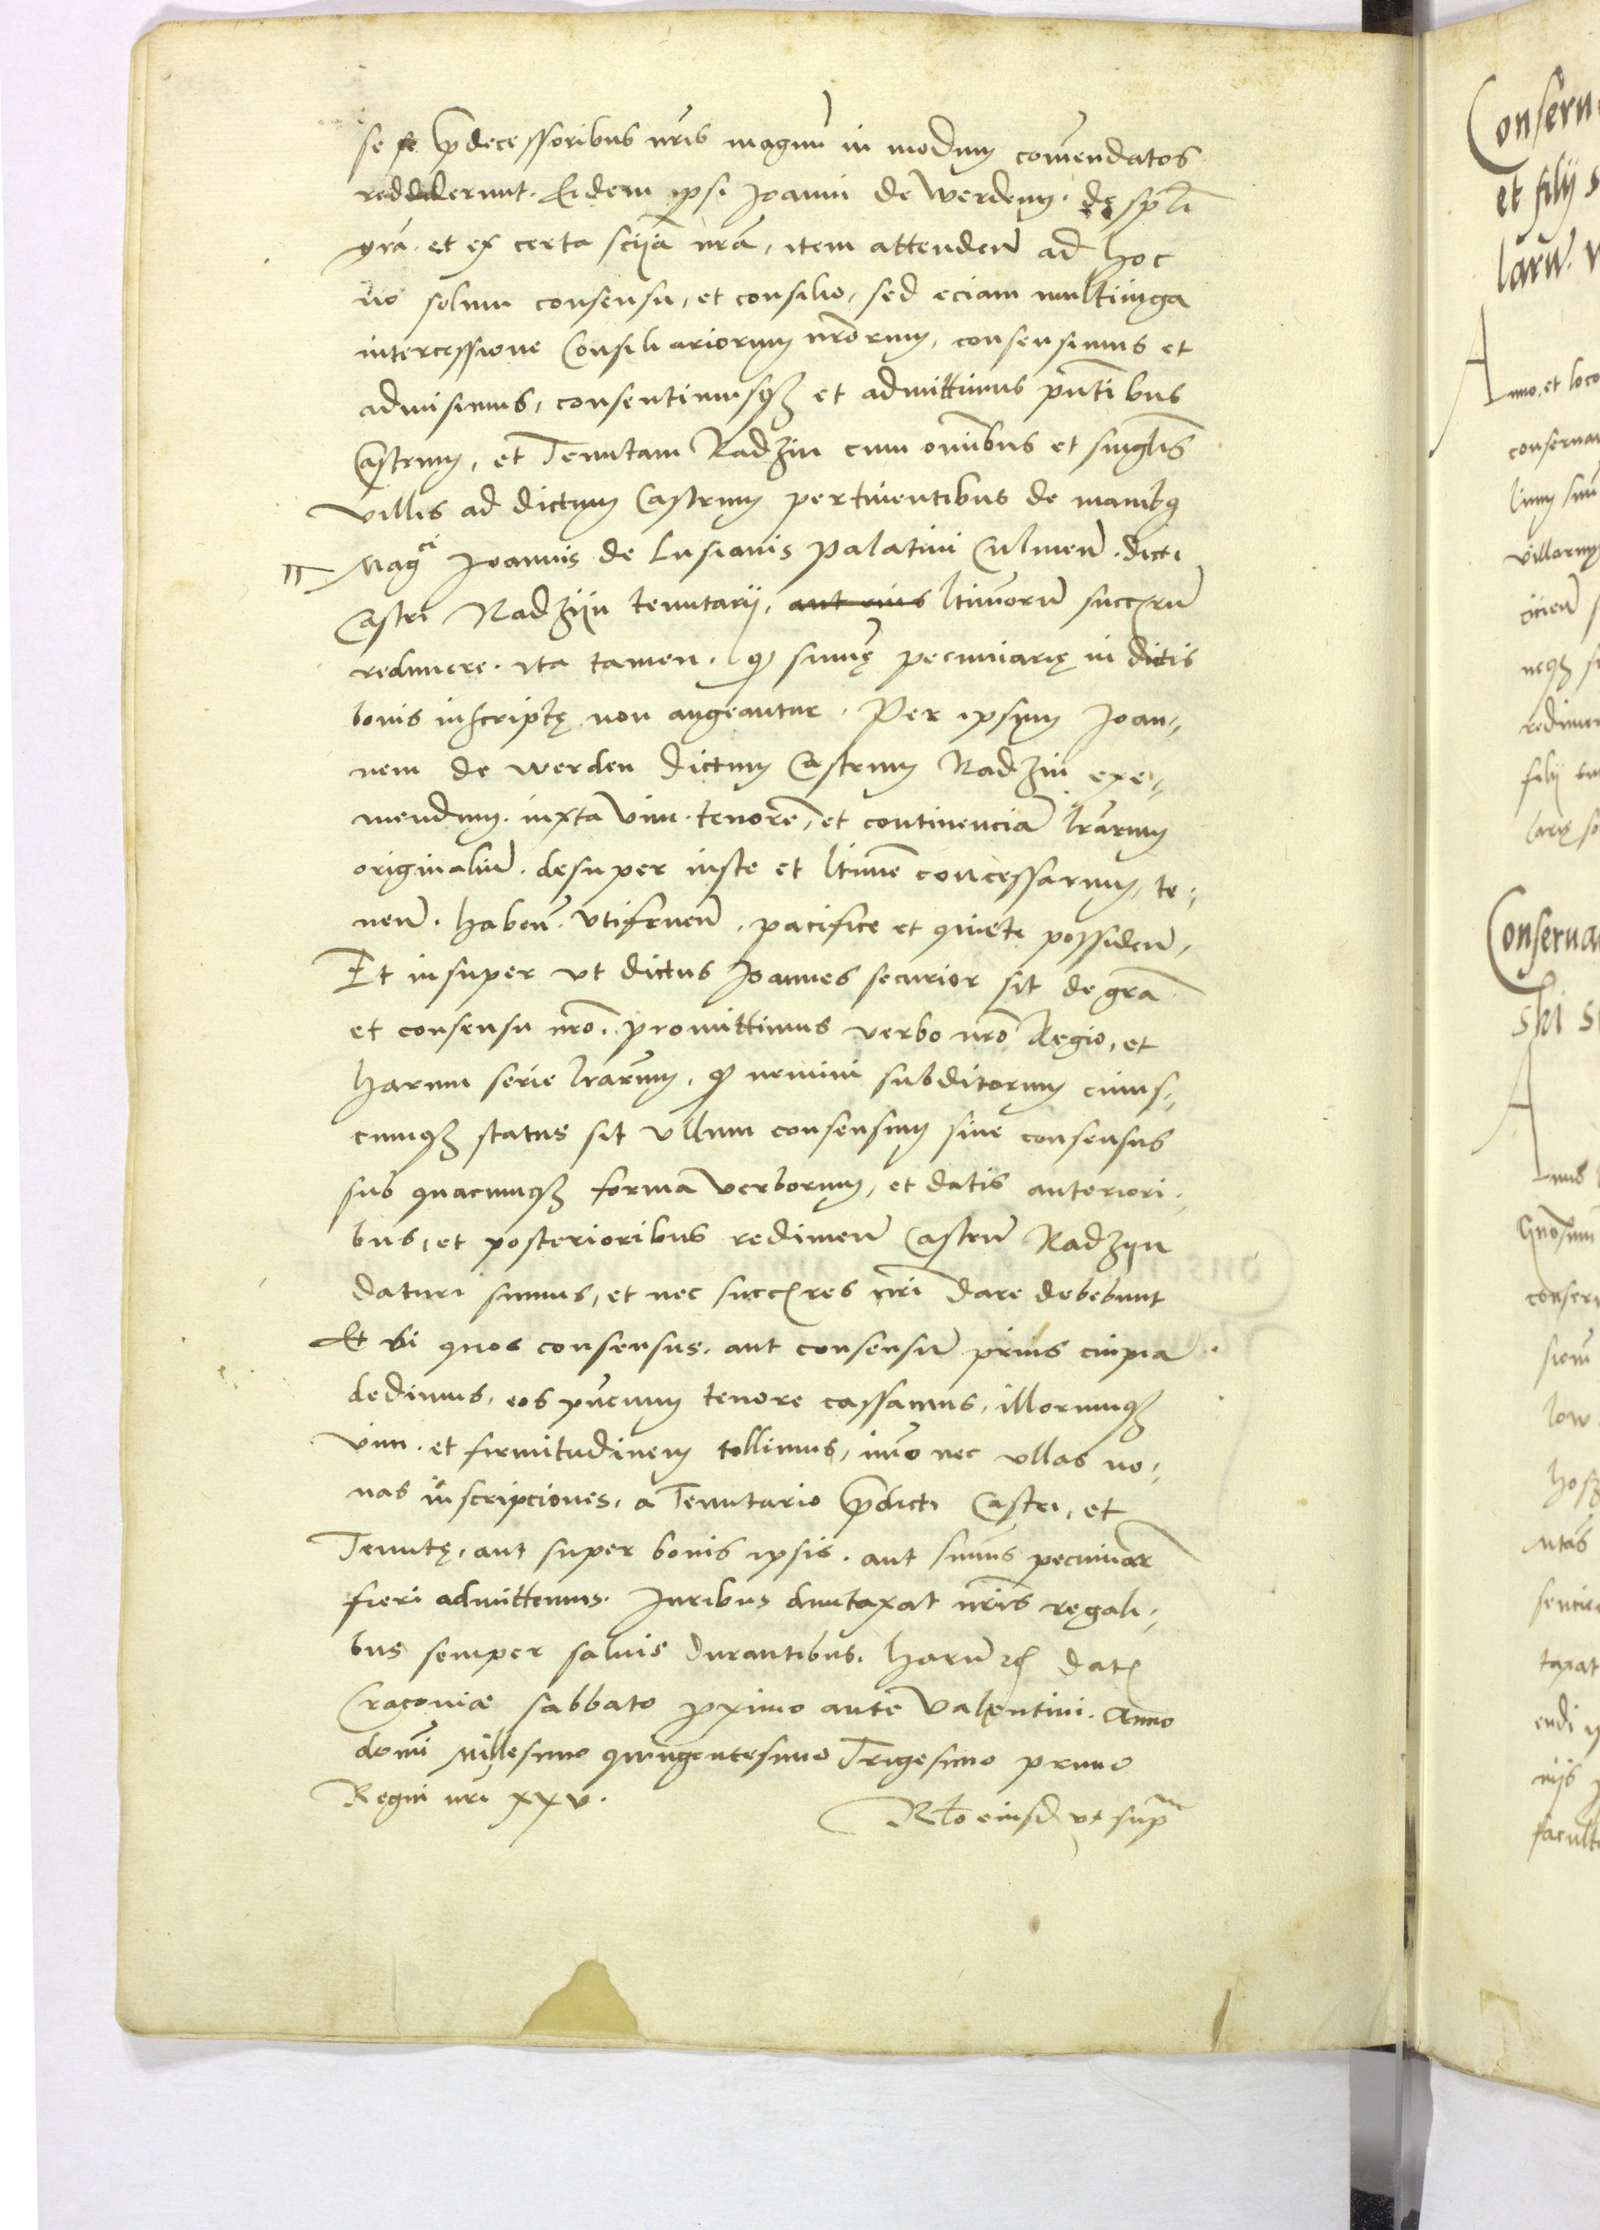 se se p̄decessoribus nr̄is magnū in modum com̄endatos
reddiderunt. Eidem ipsi Joanni de Werden. de sp̄li
gr̄a. et ex certa sciē̄ia nr̄a, item attenden̄ ad hoc
nō solum consensu, et consilio, sed eciam multiiuga
intercessione Consiliariorum nr̄orum, consensimus et
admisimus, consentimusq̄ et admittimus pn̄tibus
Castrum, et Tenutam Radzin cum om̄ibus et singl̄is
villis ad dictum Castrum pertinentibus de manib9
Mag^ci Joannis de Lusianis Palatini Culmen̄. dicti
Castri Radzijn tenutarij, aut eius ltīmorū succ̄rū
redimere. ita tamen. qđ sum̄ę pecuniarię in dictis
bonis inscriptę non augeantur. Per ipsum Joan,,
nem de Werden dictum Castrum Radzin exe,,
mendum. iuxta vim. tenorē, et continenciā lr̄arum
originaliū. desuper iuste et ltīme concessarum, te,,
nen̄. haben̄. vtifruen̄. pacifice et quiete possiden̄.
Et insuper vt dictus Joannes securior sit de gr̄a
et consensu nr̄o. promittimus verbo nr̄o Regio, et
harum serie lr̄arum, qđ nemini subditorum cuius,,
cumq̄ status sit vllum consensum siue consensus
sub quacumq̄ forma verborum, et datis anteriori,,
bus, et posterioribus redimen̄ Castrū Radzyn
daturi sumus, et nec succ̄res nr̄i dare debebunt
Et vbi quos consensus. aut consensū prius cuipiā
dedimus, eos pn̄cium tenore cassamus, illorumq̄
vim. et firmitudinem tollimus, im̄o nec vllas no,,
uas inscripciones, a Tenutario p̄dicti Castri, et
Tenutę, aut super bonis ipsis. aut sum̄is pecuniar̄
fieri admittemus. Juribus dumtaxat nr̄is regali,,
bus semper saluis durantibus. harū &c. Dat̄
Cracouiæ sabbato proximo ante Valentini. Anno
domi Millesimo quingentesimo Trigesimo primo
Regni nr̄i xxv.
Rl̄o eiusd̄ vt sup^a
Conseru
et filij s
larū.
Anno, et loco
conseruau
villarum
redimen
filij
Conserua
ski s
A
Gn̄osum
conseru
low
hosz
taxat
endi
facult